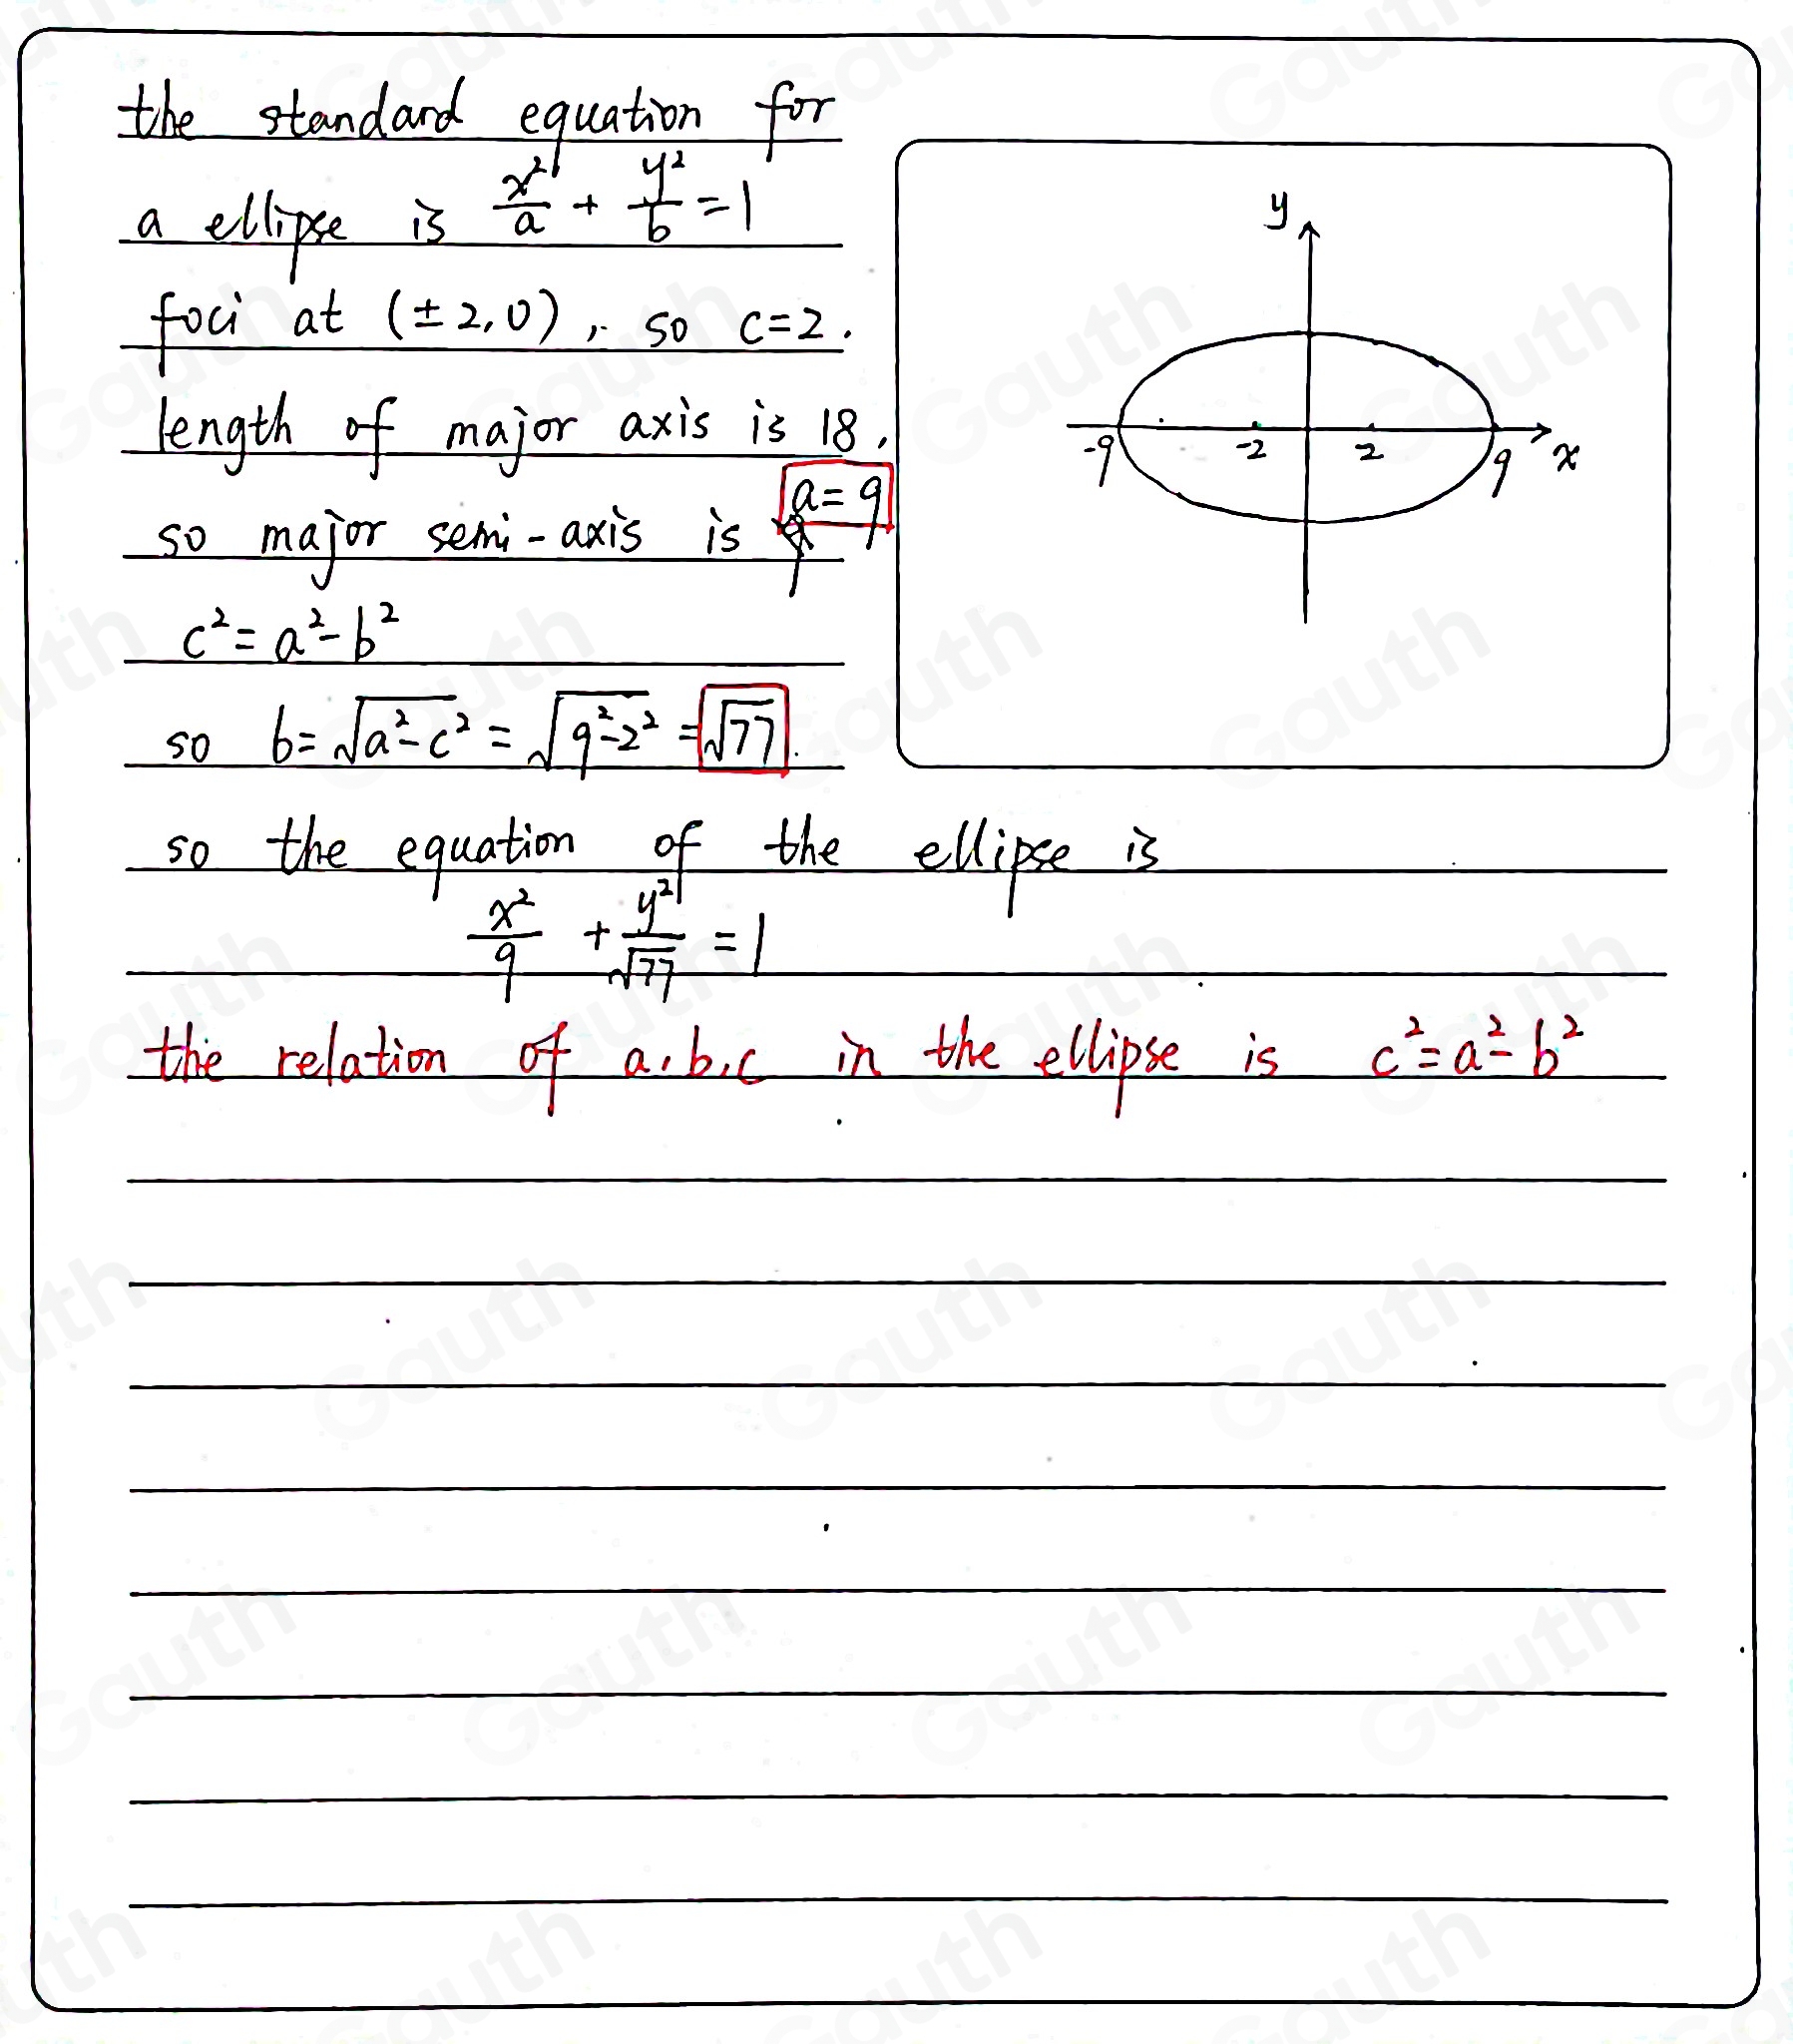 the standard equation for
a ellipse is x²/a + y²/b = 1
foci at (±2,0), so c=2.
length of major axis is 18,
so major semi-axis is a=9
c²=a²-b²
so b=√(a²-c²) = √(9²-2²) = √77.
so the equation of the ellipse is
x²/9 + y²/√77 = 1
the relation of a,b,c in the ellipse is c²=a²-b²
y
-9 -2 2 9 x
Gauth